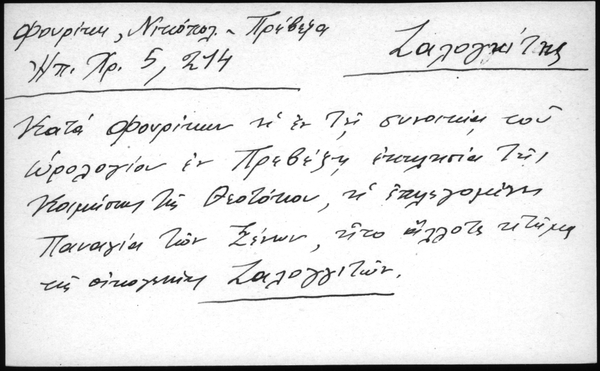 Φουρίκη, Νικόπολ. - Πρέβεζα
Ἠπ. Χρ. 5, 214
Ζαλογγίτης
Κατά Φουρίκην ἡ ἐν τῇ συνοικίᾳ τοῦ
ὡρολογίου ἐν Πρεβέζῃ ἐκκλησία τῆς
Κοιμήσεως τῆς Θεοτόκου, ἡ ἐπιλεγομένη
Παναγία τῶν Ξένων, ἦτο ἄλλοτε κτῆμα
τῆς οἰκογενείας Ζαλογγιτῶν.